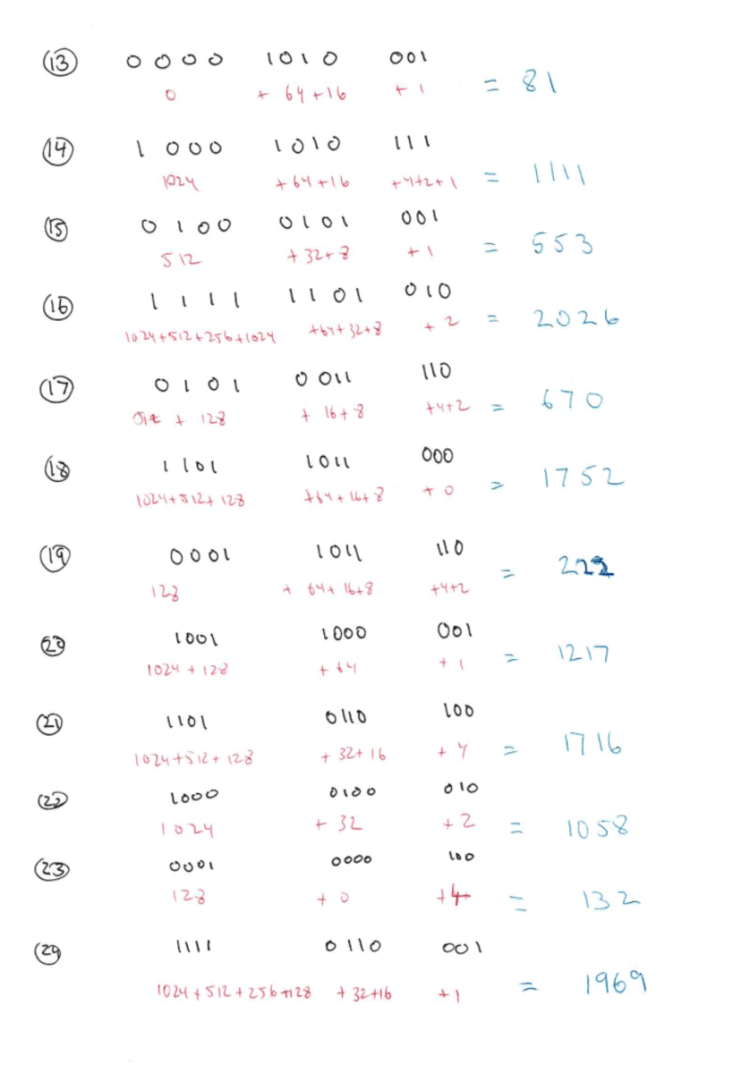 (13) 0000 1010 001
0 + 64+16 + 1 = 81
(14) 1000 1010 111
1024 +64+16 +4+2+1 = 1111
(15) 0100 0101 001
512 +32+8 +1 = 553
(16) 1111 1101 010
1024+512+256+1024 +64+32+8 + 2 = 2026
(17) 0101 0011 110
+ 128 + 16+8 +4+2 = 670
(18) 1101 1011 000
1024+512+128 +64+16+8 + 0 = 1752
(19) 0001 1011 110
128 + 64+16+8 +4+2 =
1001 1000 001
1024 + 128 + 64 + 1 = 1217
(21) 1101 0110 100
1024+512+128 + 32+16 + 4 = 1716
(22) 1000 0100 010
1024 + 32 + 2 = 1058
(23) 0001 0000 100
128 + 0 +4 = 132
1111 0110 001
1024+512+256+128 + 32+16 +1 = 1969